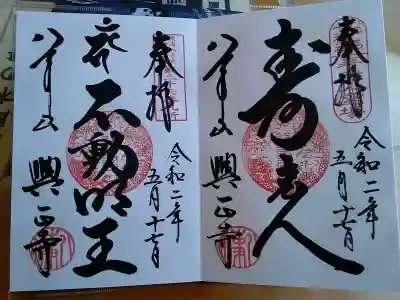 奉拝
令和二年
五月十七日
寿老人
八事山
興正寺
奉拝
令和二年
五月十七日
不動明王
八事山
興正寺